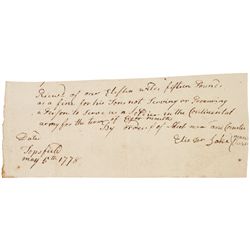 Receivd of mr Elisha Wildes fifteen Pounds
as a fine for his Sons not Serving or Procuring
a Person to Serve as a Soldier in the Continental
army for the term of Eight months
By order of Select men and Comitee
Date
Topsfield
may 5th 1778